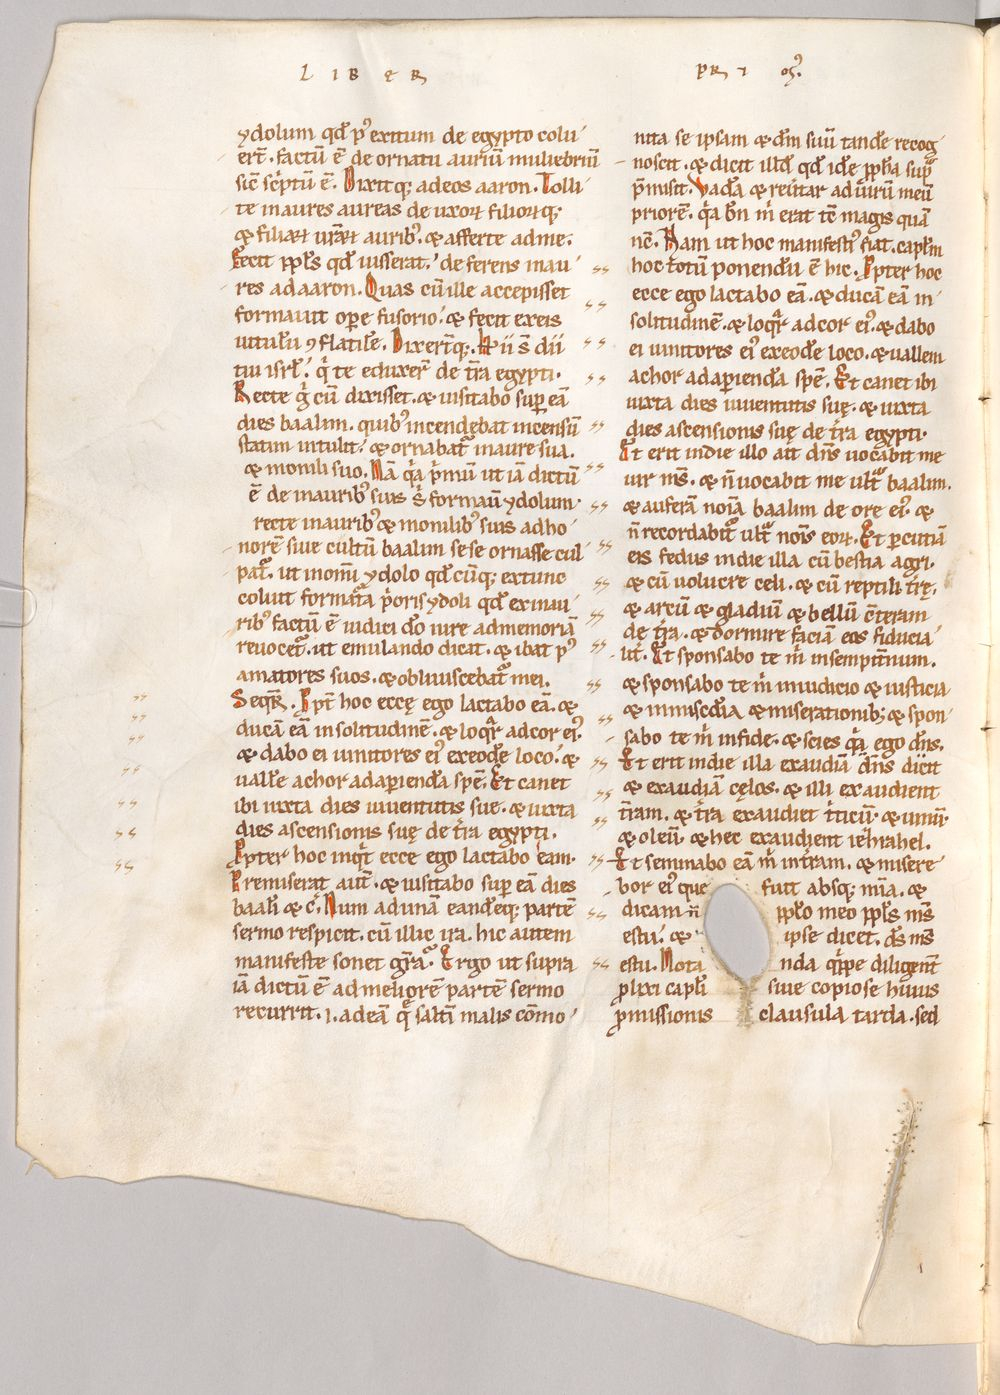 LIBER PRI OSꝰ.
ydolum qd̄ pꝰ exitum de egypto colu
ert̄. factū ē de ornatu auriū muliebriū
sic̄ sc̄ptū ē. Dixitq; ad eos aaron. Tolli
te inaures aureas de uxoꝝ filioꝝq;
& filiaꝝ urāꝝ auribꝰ. & afferte ad me.
Fecit ppl̄s qd̄ iusserat. deferens inau
res ad aaron. Quas cū ille accepisset
formauit ope fusorio. & fecit ex eis
uitulū ꝯflatilē. Dixert̄q;. Hii s̄ dii
tui isrl̄. q̇ te eduxer̄ de t̄ra egypti.
Recte g̊ cū dixisset. & uisitabo sup eā
dies baalim. quibꝰ incendebat incensū
statim intulit. & ornabat᷑ inaure sua.
& monili suo. Nā q̇a ṗmū ut iā dictū
ē de inauribꝰ suis s̄ formauit ydolum.
recte inauribꝰ & monilibꝰ suis ad ho
norē siue cultū baalim sese ornasse cul
pat᷑. ut in om̄i ydolo qd̄cūq; ex tunc
coluit formā ṗoris ydoli qd̄ ex inau
ribꝰ factū ē iudici dō iure ad memoriā
reuocet᷑. ut emulando dicat. & ibat pꝰ
amatores suos. & obliuiscebat᷑ mei.
Seqr̄. Ppt̄ hoc ecce ego lactabo eā. &
ducā eā in solitudinē. & loqr̄ ad cor eiꝰ.
& dabo ei uinitores eiꝰ ex eodē loco. &
vallē achor ad apiendā spē. Et canet
ibi iuxta dies iuuentutis sue. & iuxta
dies ascensionis suę de t̄ra egypti.
Ppter hoc inqt̄ ecce ego lactabo eam.
Premiserat aut̄. & uisitabo sup eā dies
baali & c̄. Num ad unā eandēq; partē
sermo respicit. cū illic ira. hic autem
manifeste sonet gr̄a. Ergo ut supra
iā dictū ē ad meliorē partē sermo
recurrit. i. ad eā q̄ saltī malis cōmo
nita se ipsam & dm̄ suū tandē recog
noscit. & dicit illd̄ qd̄ idē ppha sup̄
p̄misit. Vadā & reuertar ad uirū meū
priorē. q̇a bn̄ m̊ erat tē magis quā
nc̄. Nam ut hoc manifestiꝰ fiat. caplm̄
hoc totū ponendū ē hic. Ppter hoc
ecce ego lactabo eā. & ducā eā in
solitudinē. & loqr̄ ad cor eiꝰ. & dabo
ei uinitores eiꝰ ex eodē loco. & uallem
achor ad apiendā spē. Et canet ibi
iuxta dies iuuentutis suę. & iuxta
dies ascensionis suę de t̄ra egypti.
Et erit in die illo ait dn̄s uocabit me
uir ms̄. & n̄ uocabit me ult᷑ baalim.
& auferā noīa baalim de ore eiꝰ. &
n̄ recordabit᷑ ult᷑ nōis eoꝝ. Et pcutiā
eis fedus in die illa cū bestia agri.
& cū uolucre celi. & cū reptili t̄rę.
& arcū & gladiū & bellū cōteram
de t̄ra. & dormire faciā eos fiducia
lit̄. Et sponsabo te m̊ in sempit̄num.
& sponsabo te m̊ in iudicio & iusticia
& in misc̄dia & miserationib;. & spon
sabo te m̊ in fide. & scies q̇a ego dn̄s.
Et erit in die illa exaudiā dn̄s dicit
& exaudiā cęlos. & illi exaudient
t̄ram. & t̄ra exaudiet t̊ticū. & uinū.
& oleū. & hec exaudient iezrahel.
Et seminabo eā m̊ in t̄ram. & misere
bor eiꝰ que fuit absq; mīa. &
dicam n̄ pplo meo ppl̄s ms̄
es tu. & ipse dicet. ds̄ ms̄
es tu. Nota nda qippe diligent̄
plixi capli siue copiose huius
pmissionis clausula tarda. sed